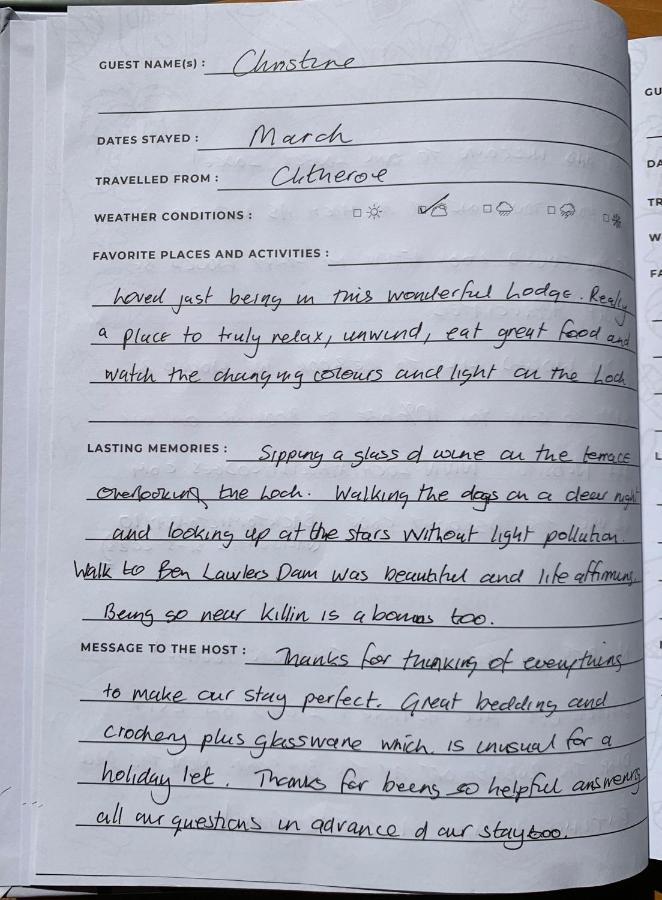 GUEST NAME(s) : Christine
DATES STAYED : March
TRAVELLED FROM : Clitheroe
WEATHER CONDITIONS :
FAVORITE PLACES AND ACTIVITIES :
Loved just being in this wonderful Lodge. Really
a place to truly relax, unwind, eat great food and
watch the changing colours and light on the Loch
LASTING MEMORIES : Sipping a glass of wine on the terrace
overlooking the Loch. Walking the dogs on a clear night
and looking up at the stars without light pollution.
Walk to Ben Lawlers Dam was beautiful and life affirming.
Being so near Killin is a bonus too.
MESSAGE TO THE HOST : Thanks for thinking of everything
to make our stay perfect. Great bedding and
crockery plus glassware which is unusual for a
holiday let. Thanks for being so helpful answering
all our questions in advance of our stay too.
GU
DA
TR
W
FA
L